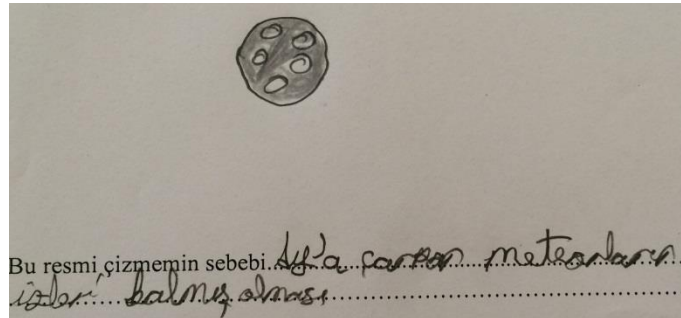 Bu resmi çizmemin sebebi..Ay'a çarpan meteorların
izleri kalmış olması